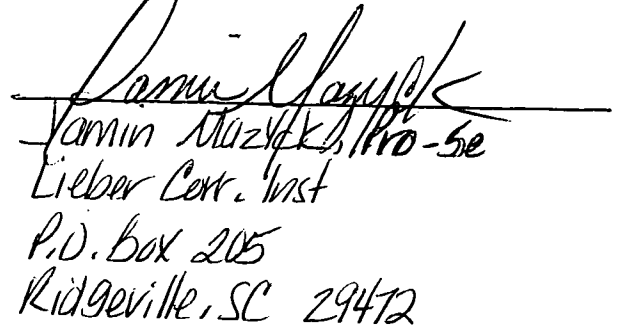 Jamin Mazyck
Jamin Mazyck, Pro-Se
Lieber Corr. Inst
P.O. Box 205
Ridgeville, SC 29472